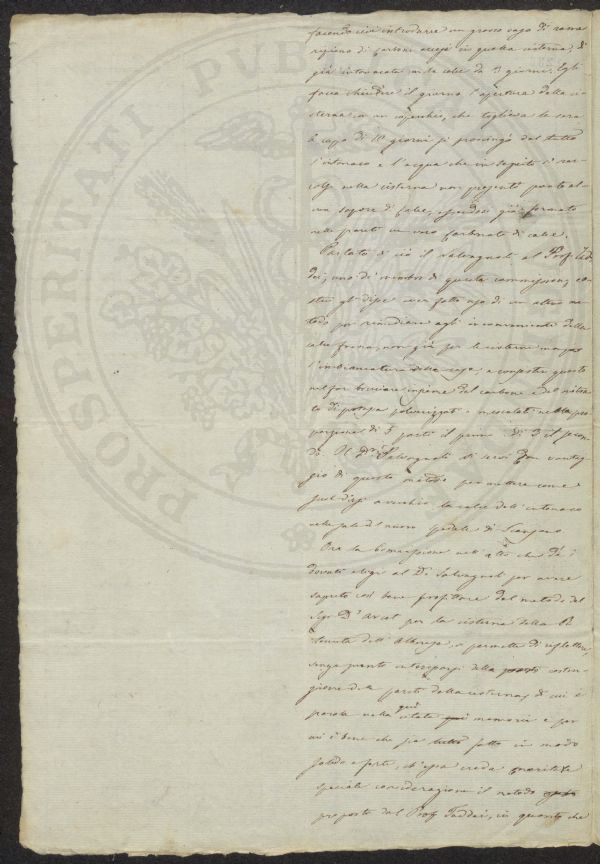 facendovi introdurre un grosso vaso di rame
ripieno di carbone acceso in questa cisterna, di
già intonacata nelle calce da 3 giorni. Egli
faceva chiudere il giorno l'apertura della ci
sterna con un coperchio, che toglieva la sera
A capo di 10 giorni si prosciugò del tutto
l'intonaco e l'acqua che in seguito si rac
colse nella cisterna non presentò punto al
cun sapore di calce, essendosi già formato
nelle pareti un vero carbonato di calce.
Parlato di ciò il Salvagnoli al Prof Tad
dei, uno de' membri di questa commissione, co
stui gli disse aver fatto uso di un altro me
todo per rimediare agli inconvenienti della
calce fresca, non già per le cisterne ma per
l'imbiancatura delle case, e consister questo
nel far bruciare insieme del carbone e del nitra
to di potassa polverizzati e mescolati nella pro
porzione di 5 parti il primo di 3 il secon
do. Il Dr Salvagnoli si servì con vantag
gio di questo metodo per mettere come
suol dirsi a vecchio la calce dell'intonaco
nelle sale del nuovo spedale di Scansano
Ora la Commissione nell'atto che dà i
dovuti elogi al Dr Salvagnoli per avere
saputo così bene profittare del metodo del
Sigr D'Arcet per la cisterna della R
tenuta dell'Alberese, si permette di riflettere,
senza punto interporsi della costru
zione delle pareti della cisterna, di cui è
parola nella qui citata memoria e per
cui è bene che sia tutto fatto in modo
solido e forte, ch'essa creda meritare
speciale considerazione il metodo
proposto dal Prof Taddei, in quanto che
PROSPERITATI PVBL